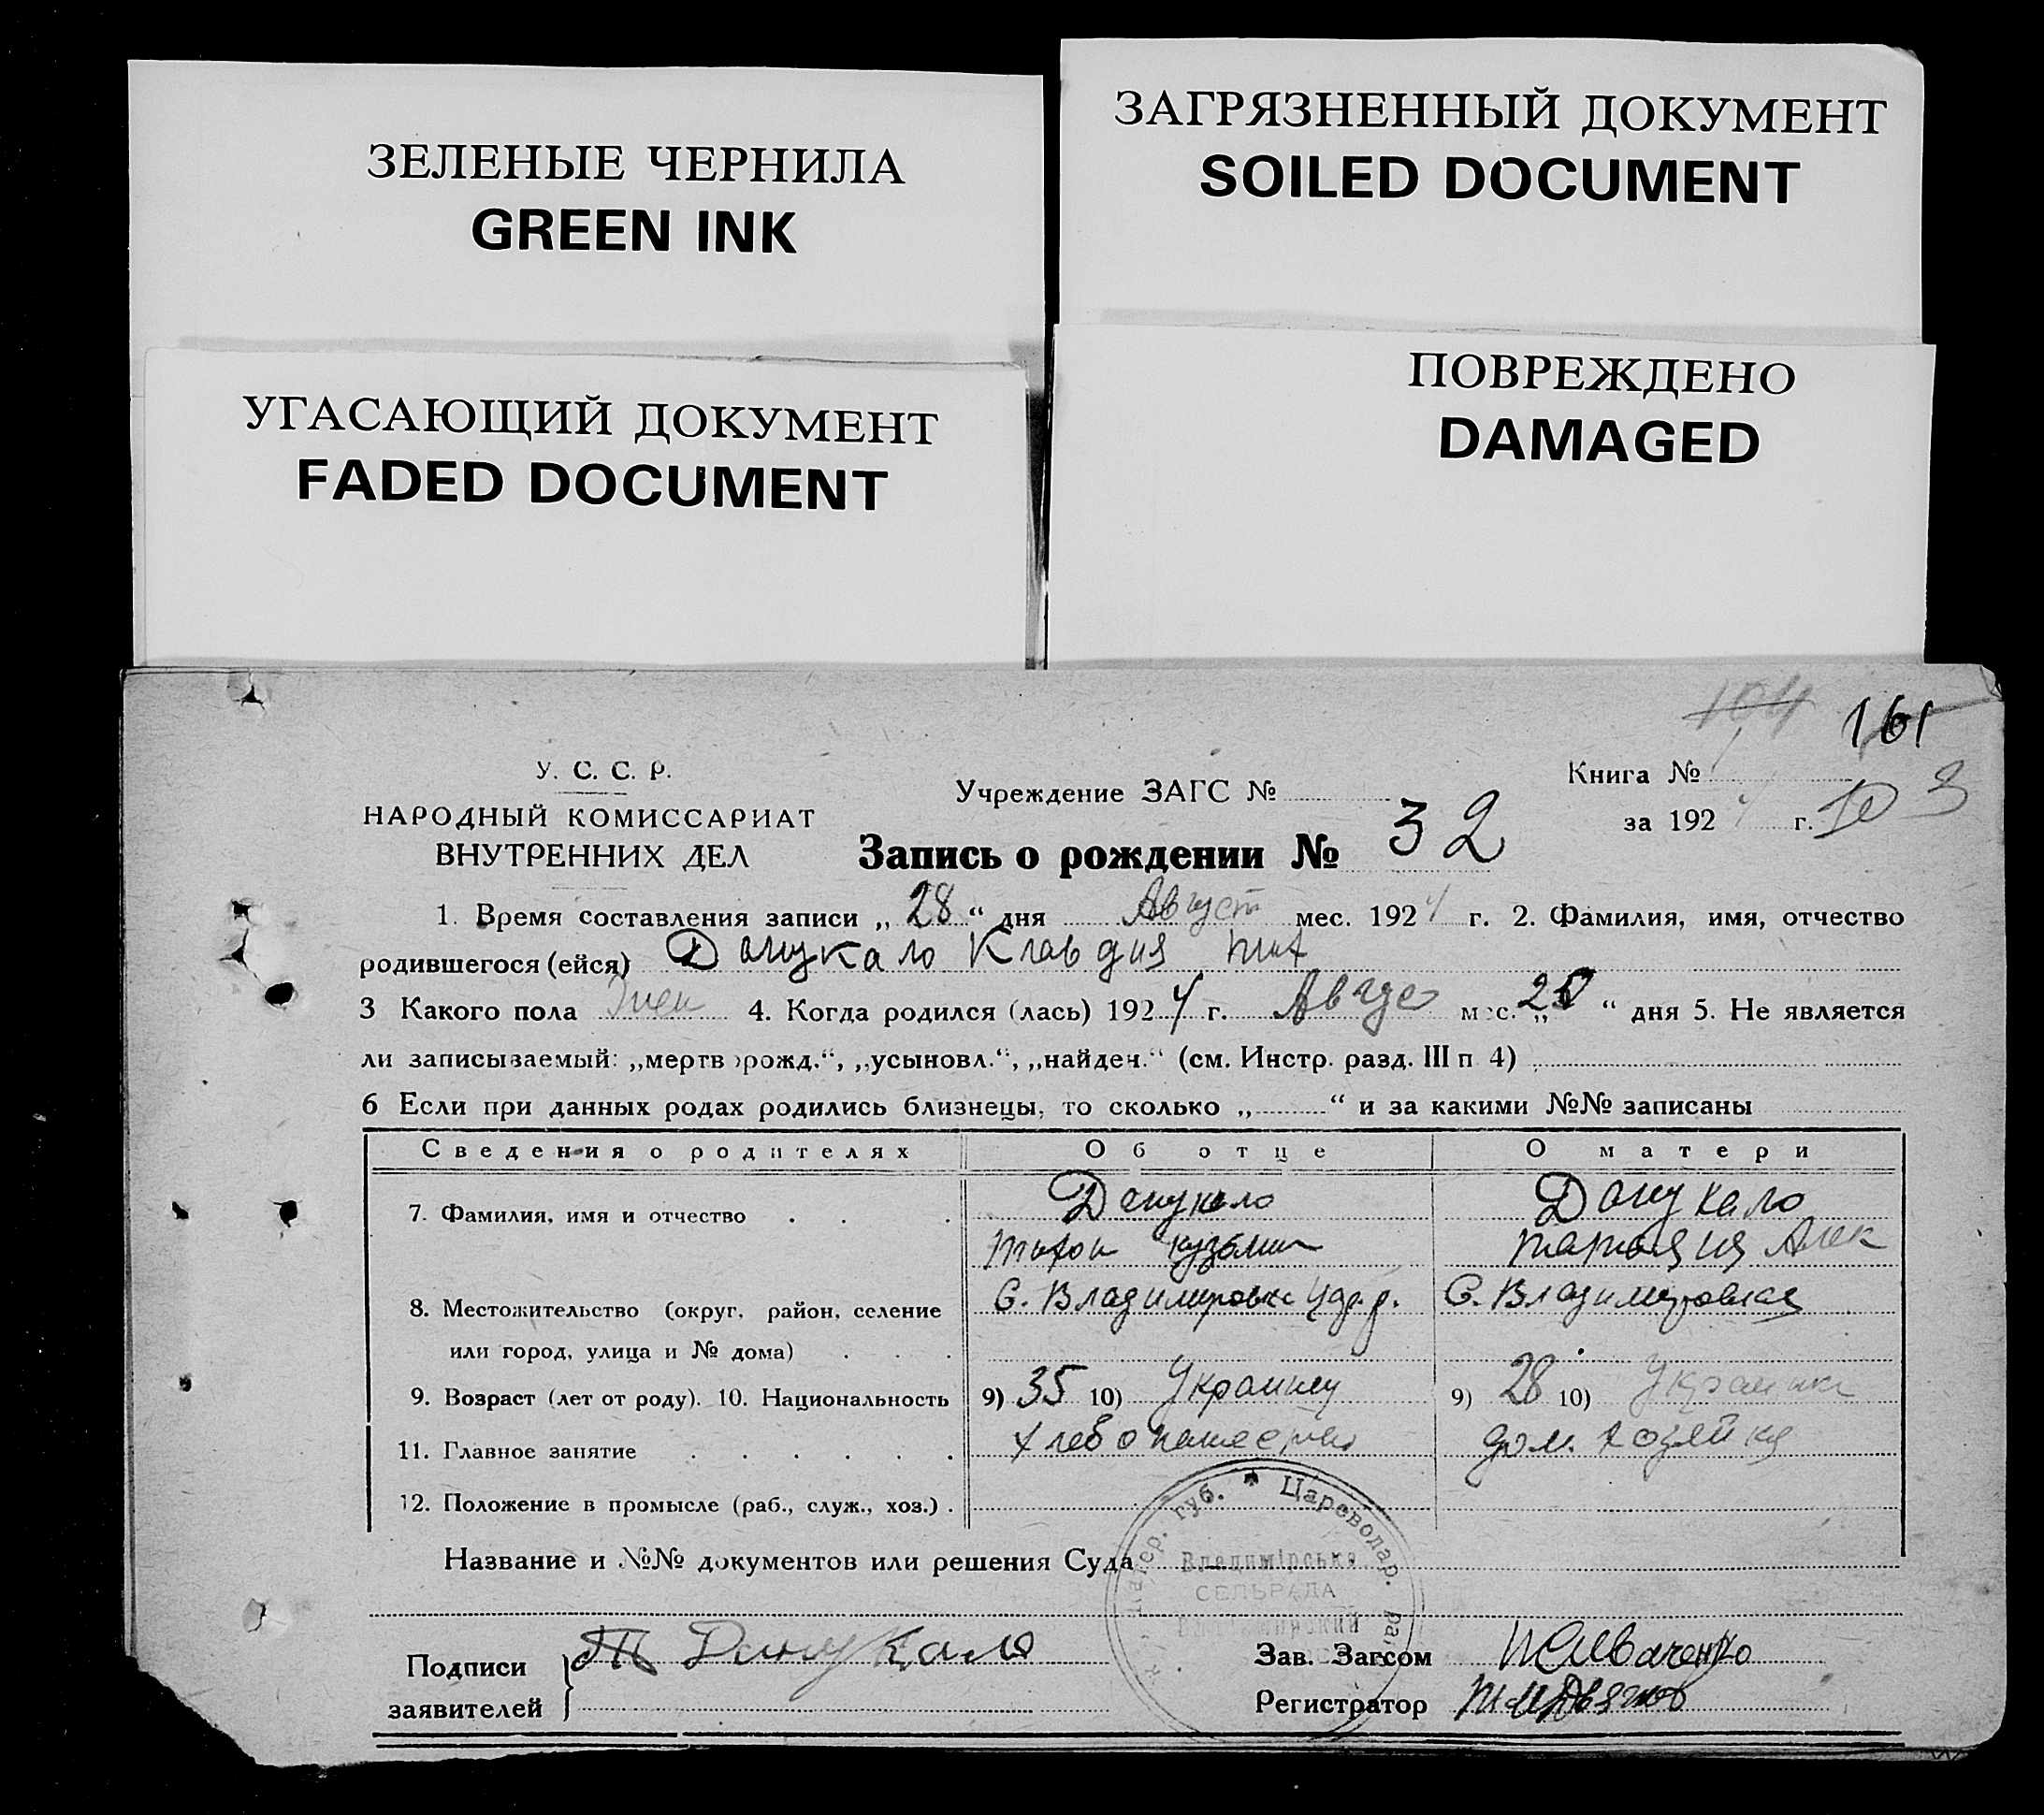 ЗЕЛЕНЫЕ ЧЕРНИЛА
GREEN INK
ЗАГРЯЗНЕННЫЙ ДОКУМЕНТ
SOILED DOCUMENT
УГАСАЮЩИЙ ДОКУМЕНТ
FADED DOCUMENT
ПОВРЕЖДЕНО
DAMAGED
104 161
У. С. С. Р.
НАРОДНЫЙ КОМИССАРИАТ
ВНУТРЕННИХ ДЕЛ
Учреждение ЗАГС №
Книга №
за 1924 г. 103
Запись о рождении № 32
1. Время составления записи „28“ дня Август мес. 1924 г. 2. Фамилия, имя, отчество
родившегося (ейся) Клавдия Тит
3 Какого пола жен 4. Когда родился (лась) 1924 г. Авгус мес. „20“ дня 5. Не является
ли записываемый: „мертворожд.“, „усыновл.“, „найден.“ (см. Инстр. разд. III п 4)
6 Если при данных родах родились близнецы, то сколько „ “ и за какими №№ записаны
Сведения о родителях Об отце О матери
7. Фамилия, имя и отчество
Кузьмич Алек
8. Местожительство (округ, район, селение С. Владимировка С. Владимировка
или город, улица и № дома)
9. Возраст (лет от роду). 10. Национальность 9) 35 10) Украинец 9) 28 10) Украинка
11. Главное занятие хлебопашество дом. хозяйка
12. Положение в промысле (раб., служ., хоз.)
губ. Цареводар.
СЕЛЬРАДА
Название и №№ документов или решения Суда
Подписи
заявителей
Зав. Загсом
Регистратор